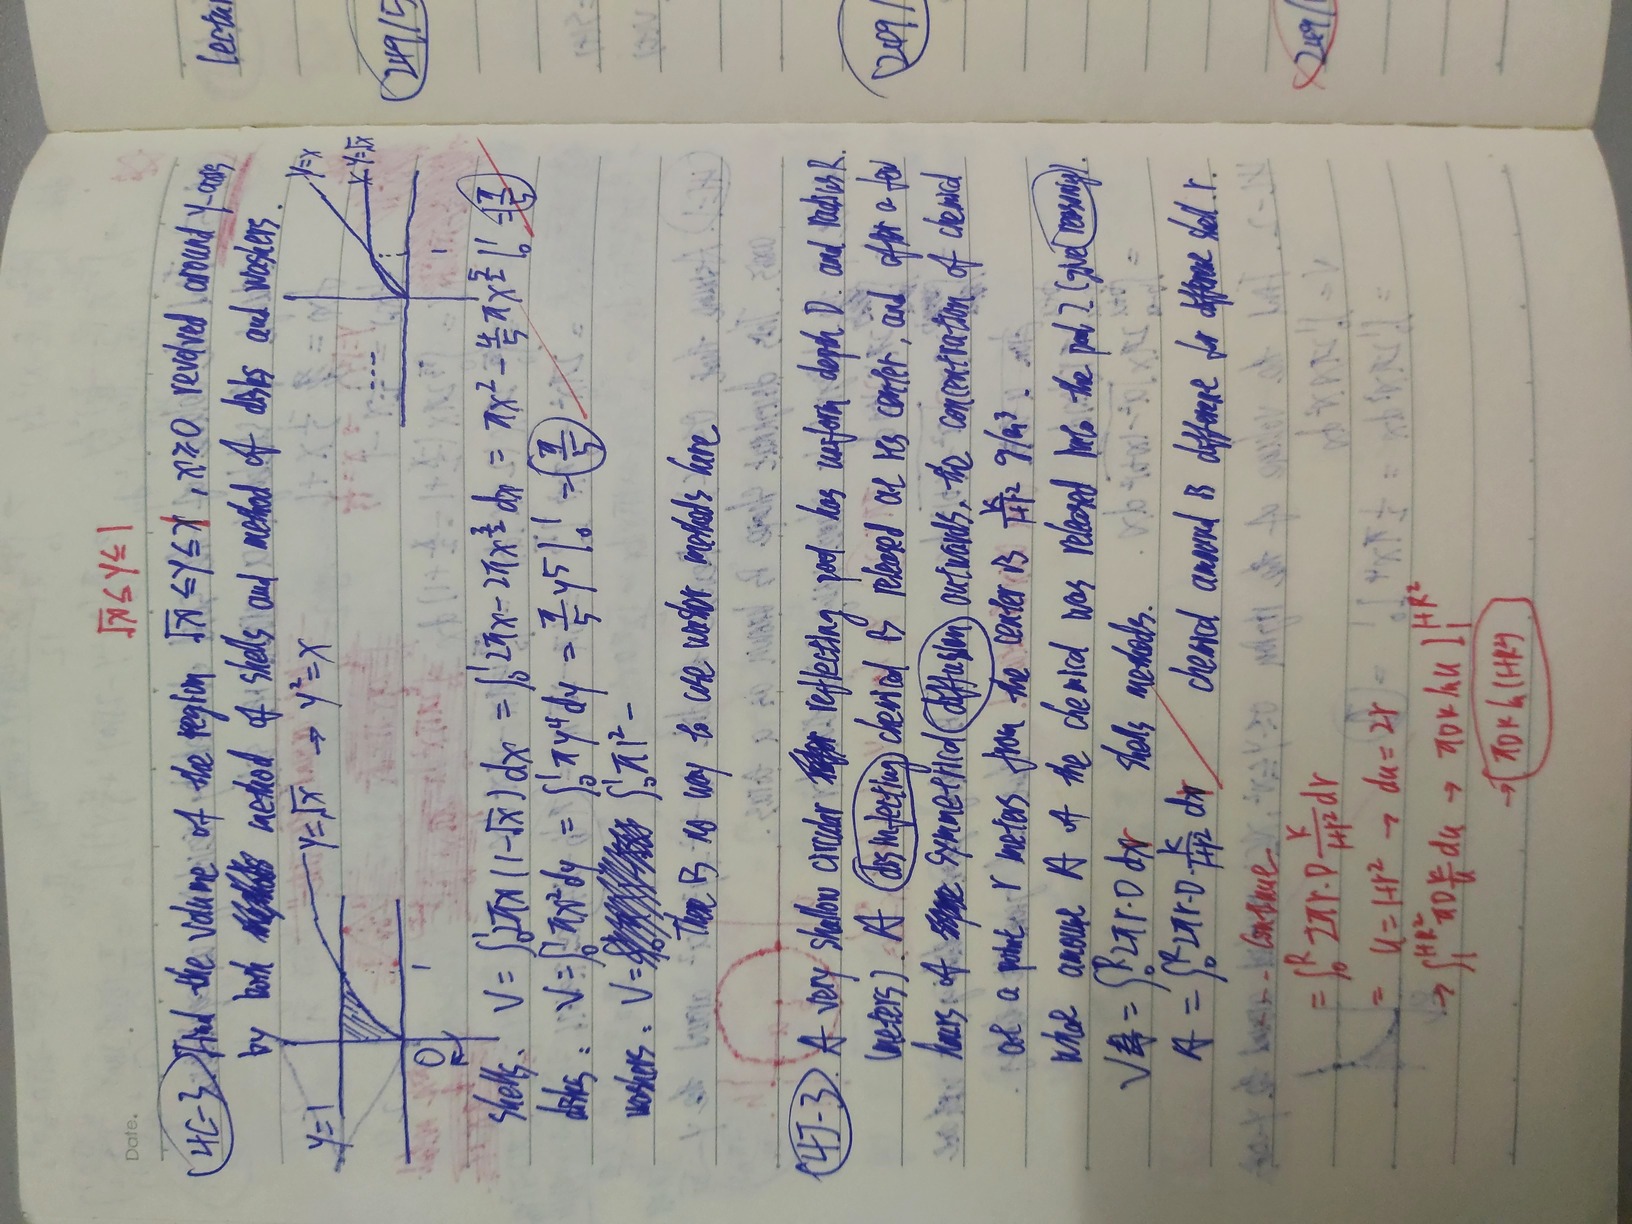 Date.
√x ≤ y ≤ 1
4C-3. Find the volume of the region √x ≤ y ≤ 1, x ≥ 0 revolved around y-axis
by both method of shells and method of disks and washers.
y=1
y=√x → y²=x
y=x
y=√x
0
1
1
shells: V = ∫₀¹ 2πx(1-√x) dx = ∫₀¹ 2πx - 2πx^(3/2) dx = πx² - 4/5 πx^(5/2) |₀¹ = π/5
disks: V = ∫₀¹ πx² dy = ∫₀¹ πy⁴ dy = π/5 y⁵ |₀¹ = π/5
washers: V = ∫₀¹ π1² -
There is no way to use washer methods here
4J-3. A very shallow circular reflecting pool has uniform depth D. and radius R.
(meters). A disinfecting chemical is released at its center, and after a few
hours of symmetrical diffusion outwards, the concentration of chemical
at a point r meters from the center is k/1+r² g/m³.
what amount A of the chemical was released into the pool? (give reasoning).
V = ∫₀ᴿ 2πr·D dr shells methods.
A = ∫₀ᴿ 2πr·D·k/1+r² dr chemical amound is difference for difference shell r.
-- Continue
= ∫₀ᴿ 2πr·D k/1+r² dr
= u=1+r² → du=2r
→ ∫₁^(1+R²) πD k/u du → πDk ln u ]₁^(1+R²)
→ πDk ln(1+R²)
Lectur
249/5
249/
249/